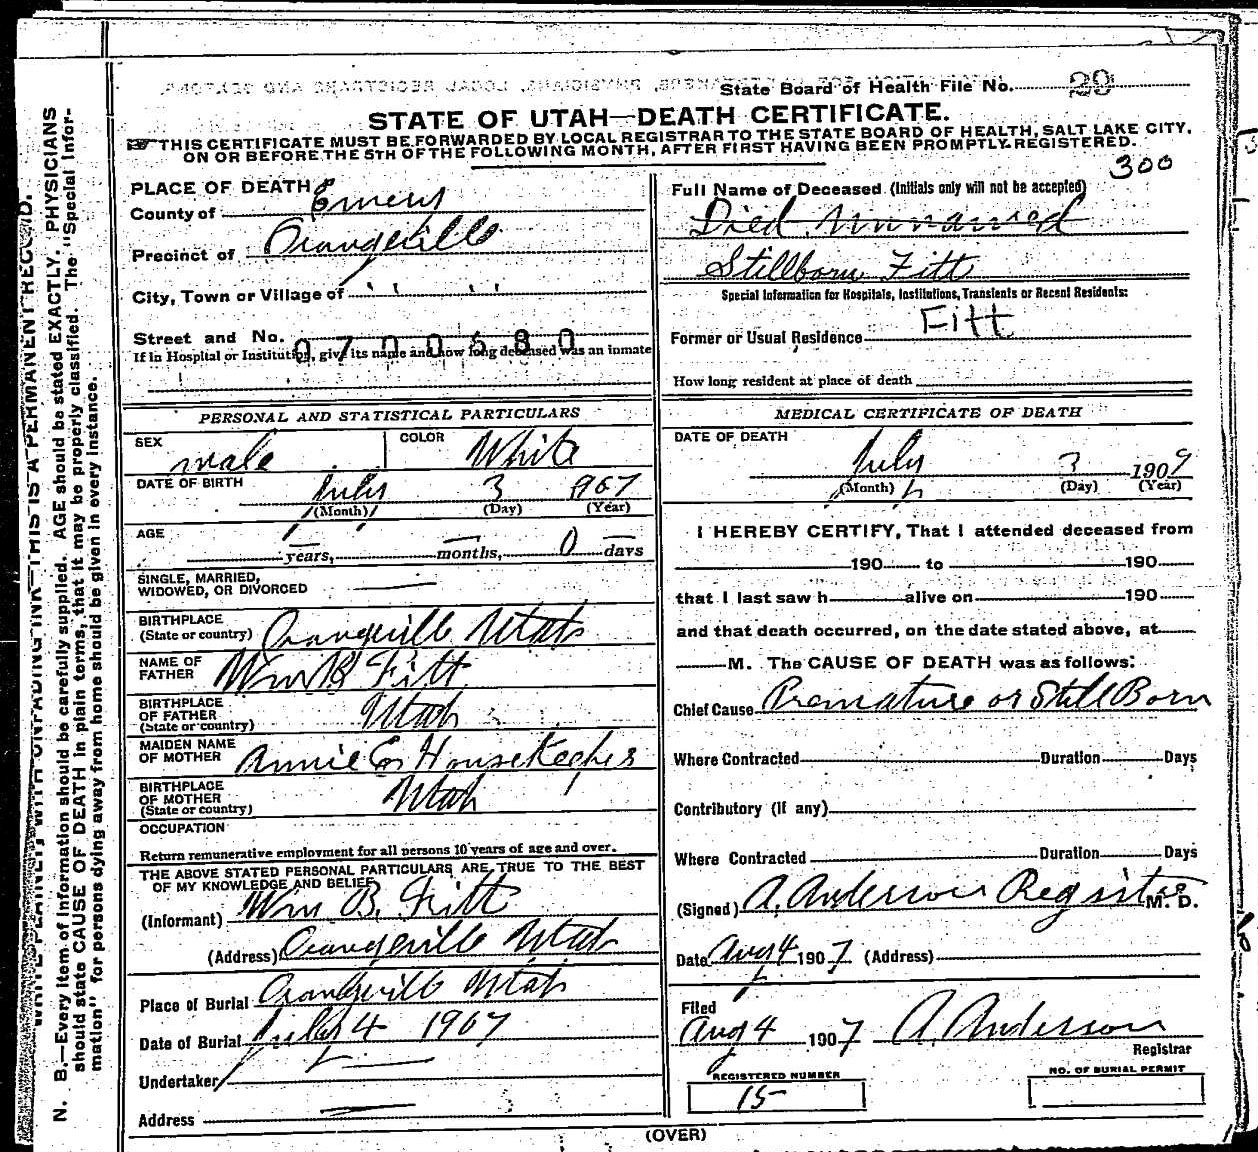 State Board of Health File No. 29
STATE OF UTAH—DEATH CERTIFICATE.
THIS CERTIFICATE MUST BE FORWARDED BY LOCAL REGISTRAR TO THE STATE BOARD OF HEALTH, SALT LAKE CITY,
ON OR BEFORE THE 5TH OF THE FOLLOWING MONTH, AFTER FIRST HAVING BEEN PROMPTLY REGISTERED.
300
PLACE OF DEATH
County of Emery
Precinct of Orangeville
City, Town or Village of " "
Street and No.
0700680
If in Hospital or Institution, give its name and how long deceased was an inmate
PERSONAL AND STATISTICAL PARTICULARS
SEX male COLOR White
DATE OF BIRTH July 3 1907
(Month) (Day) (Year)
AGE — years, — months, 0 days
SINGLE, MARRIED,
WIDOWED, OR DIVORCED —
BIRTHPLACE
(State or country) Orangeville Utah
NAME OF
FATHER Wm B Fitt
BIRTHPLACE
OF FATHER
(State or country) Utah
MAIDEN NAME
OF MOTHER Annie E. Housekeeper
BIRTHPLACE
OF MOTHER
(State or country) Utah
OCCUPATION
Return remunerative employment for all persons 10 years of age and over.
THE ABOVE STATED PERSONAL PARTICULARS ARE TRUE TO THE BEST
OF MY KNOWLEDGE AND BELIEF
(Informant) Wm B. Fitt
(Address) Orangeville Utah
Place of Burial Orangeville Utah
Date of Burial July 4 1907
Undertaker —
Address —
Full Name of Deceased (Initials only will not be accepted)
Died Unnamed
Stillborn Fitt
Special Information for Hospitals, Institutions, Transients or Recent Residents:
Fitt
Former or Usual Residence
How long resident at place of death
MEDICAL CERTIFICATE OF DEATH
DATE OF DEATH
July 3 1907
(Month) (Day) (Year)
I HEREBY CERTIFY, That I attended deceased from
190 to 190
that I last saw h alive on 190
and that death occurred, on the date stated above, at
M. The CAUSE OF DEATH was as follows:
Chief Cause Premature or Still Born
Where Contracted Duration Days
Contributory (if any)
Where Contracted Duration Days
(Signed) A. Anderson Registrar M. D.
Date Aug 4 1907 (Address)
Filed
Aug 4 1907 A. Anderson
Registrar
REGISTERED NUMBER
15
NO. OF BURIAL PERMIT
(OVER)
N. B.—Every item of information should be carefully supplied. AGE should be stated EXACTLY. PHYSICIANS
should state CAUSE OF DEATH in plain terms, that it may be properly classified. The "Special Infor-
mation" for persons dying away from home should be given in every instance.
WRITE PLAINLY, WITH UNFADING INK—THIS IS A PERMANENT RECORD.